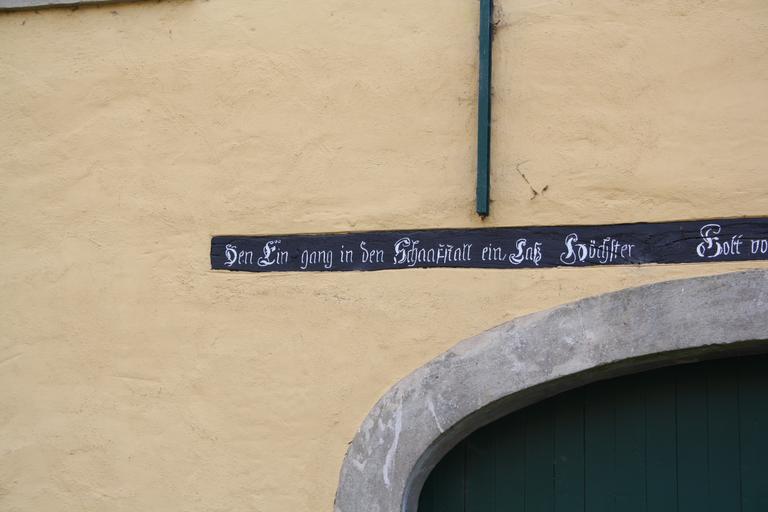 Den Ein gang in den Schaafstall ein Laß Höchster Gott vo